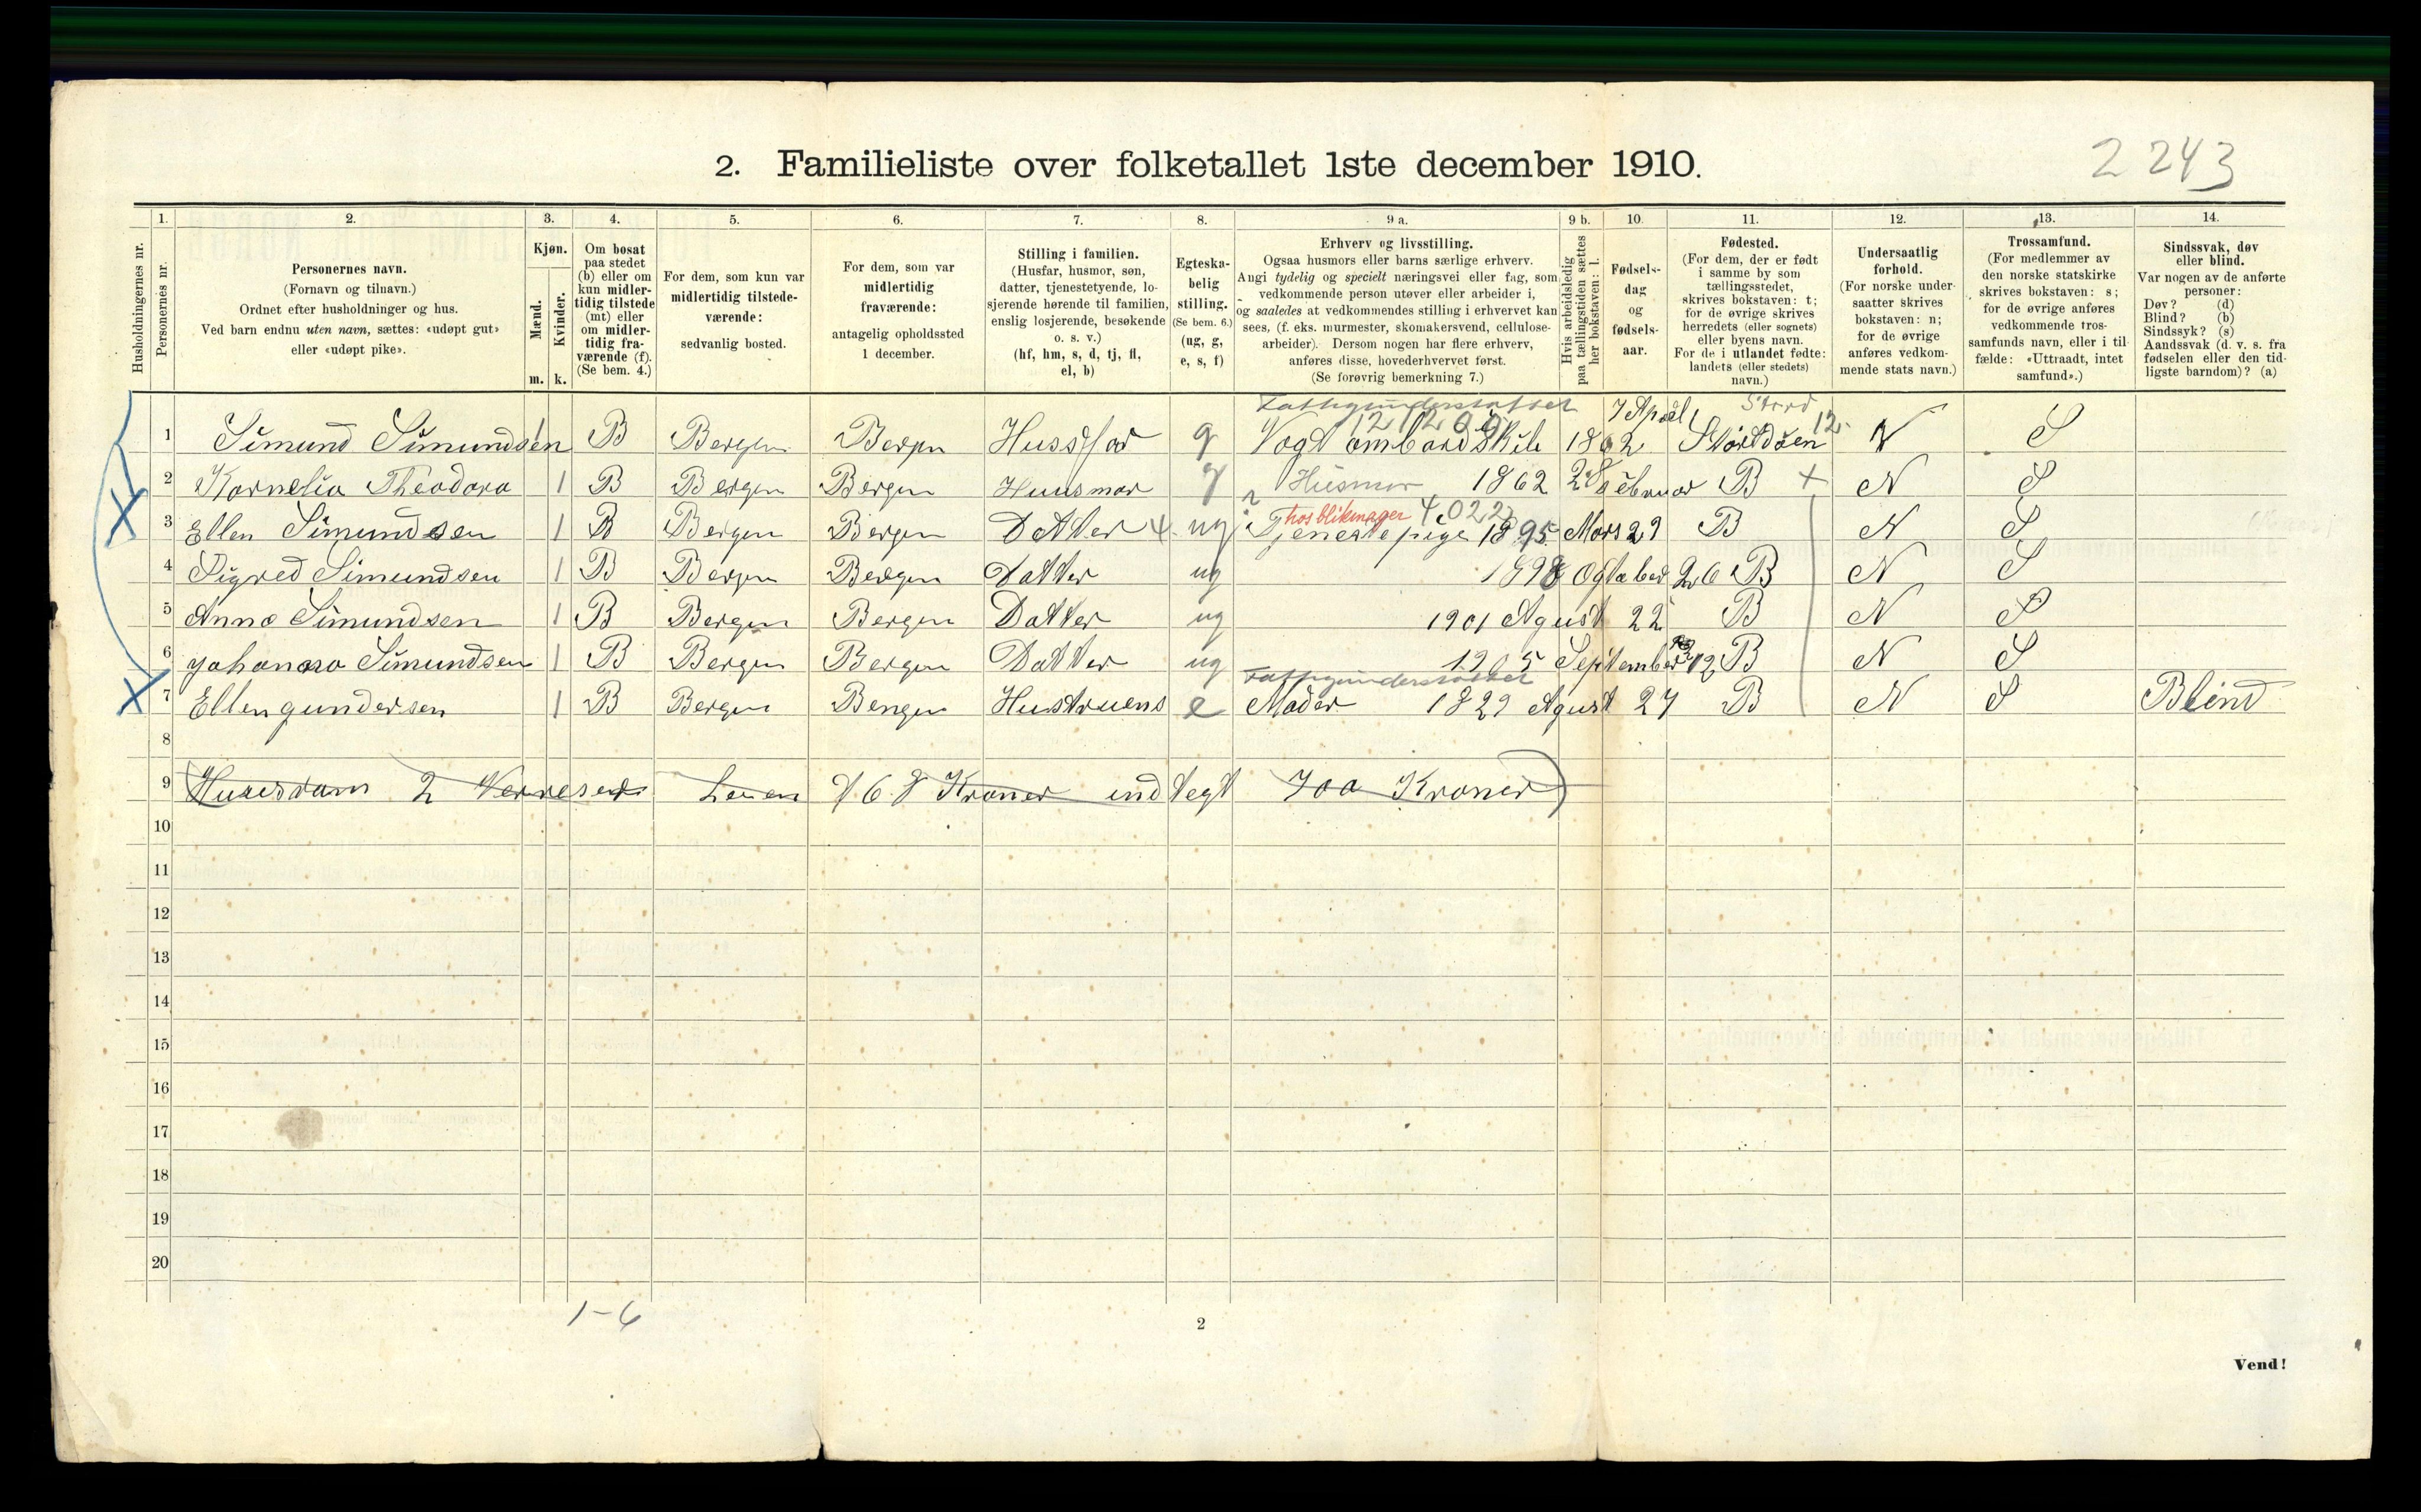 2. Familieliste over folketallet 1ste december 1910.
2 243
1. 2. 3. 4. 5. 6. 7. 8. 9 a. 9 b. 10. 11. 12. 13. 14.
Husholdningernes nr.
Personernes nr.
Personernes navn.
(Fornavn og tilnavn.)
Ordnet efter husholdninger og hus.
Ved barn endnu uten navn, sættes: «udøpt gut»
eller «udøpt pike».
Kjøn.
Mænd.
Kvinder.
m. k.
Om bosat
paa stedet
(b) eller om
kun midler-
tidig tilstede
(mt) eller
om midler-
tidig fra-
værende (f).
(Se bem. 4.)
For dem, som kun var
midlertidig tilstede-
værende:
sedvanlig bosted.
For dem, som var
midlertidig
fraværende:
antagelig opholdssted
1 december.
Stilling i familien.
(Husfar, husmor, søn,
datter, tjenestetyende, lo-
sjerende hørende til familien,
enslig losjerende, besøkende
o. s. v.)
(hf, hm, s, d, tj, fl,
el, b)
Egteska-
belig
stilling.
(Se bem. 6.)
(ug, g,
e, s, f)
Erhverv og livsstilling.
Ogsaa husmors eller barns særlige erhverv.
Angi tydelig og specielt næringsvei eller fag, som
vedkommende person utøver eller arbeider i,
og saaledes at vedkommendes stilling i erhvervet kan
sees, (f. eks. murmester, skomakersvend, cellulose-
arbeider). Dersom nogen har flere erhverv,
anføres disse, hovederhvervet først.
(Se forøvrig bemerkning 7.)
Hvis arbeidsledig
paa tællingstiden sættes
her bokstaven: l.
Fødsels-
dag
og
fødsels-
aar.
Fødested.
(For dem, der er født
i samme by som
tællingsstedet,
skrives bokstaven: t;
for de øvrige skrives
herredets (eller sognets)
eller byens navn.
For de i utlandet fødte:
landets (eller stedets)
navn.)
Undersaatlig
forhold.
(For norske under-
saatter skrives
bokstaven: n;
for de øvrige
anføres vedkom-
mende stats navn.)
Trossamfund.
(For medlemmer av
den norske statskirke
skrives bokstaven: s;
for de øvrige anføres
vedkommende tros-
samfunds navn, eller i til-
fælde: «Uttraadt, intet
samfund».)
Sindssvak, døv
eller blind.
Var nogen av de anførte
personer:
Døv? (d)
Blind? (b)
Sindssyk? (s)
Aandssvak (d. v. s. fra
fødselen eller den tid-
ligste barndom)? (a)
Fattigunderstøttet 7 April Stord
1 Simund Simundsen 1 B Bergen Bergen Hussfar g Vogt ombord Skib 1862 Stordøen 12 N S
2 Kornelia Theodora 1 B Bergen Bergen Huusmor g Husmor 1862 28 Februar B + N S
hos blikmager 4.022
3 Ellen Simundsen 1 B Bergen Bergen Datter ug Tjenestepige 1895 Mars 29 B N S
4 Sigred Simundsen 1 B Bergen Bergen Datter ug 1898 Ogtober 26 B N S
5 Anna Simundsen 1 B Bergen Bergen Datter ug 1901 Agust 22 B N S
6 Johanna Simundsen 1 B Bergen Bergen Datter ug 1905 September 12 B N S
Fattigunderstøttet
7 Ellen gundersen 1 B Bergen Bergen Hustruens e Moder 1829 Agust 27 B N S Blind
8
9 2 Kroner ind tegt 700 Kroner
10
11
12
13
14
15
16
17
18
19
20
1-6
2
Vend!